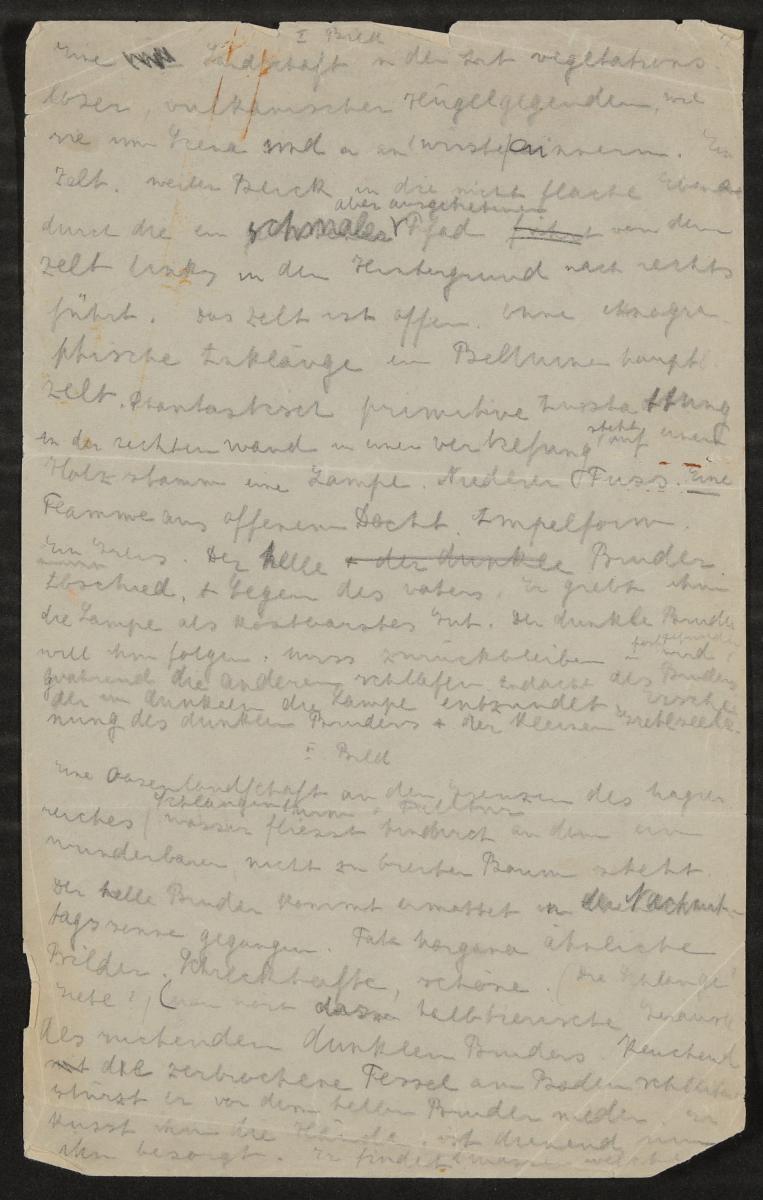 I Bild
Eine Landschaft in der Art vegetations-
loser, vulkanischer Hügelgegenden, wie
sie um Siena sind u an Wüste erinnern. Ein
Zelt. Weiter Blick in die nicht flache Ebene
aber ausgetretener
durch die ein schmaler Pfad führt von dem
Zelt links in den Hintergrund nach rechts
führt. Das Zelt ist offen. Ohne ethnogra-
phische Anklänge ein Beduinenhaupt-
zelt. Phantastisch primitive Ausstattung
in der rechten Wand in einer Vertiefung steht auf einem
Holzstamm eine Lampe. Niederer Fuss. Eine
Flamme aus offenem Docht. Ampelform.
Ein Greis. Der helle + der dunkle Bruder.
Abschied, + Segen des Vaters. Er giebt ihm
die Lampe als kostbarstes Gut. Der dunkle Bruder
will ihm folgen. Muss zurückbleiben u wird
während die anderen schlafen. Andacht des Bruders
der im dunkeln die Lampe entzündet. Erschei-
nung des dunklen Bruders + der kleinen
II Bild
Eine Oasenlandschaft an den Grenzen des Magier
reiches Wasser fliesst hindurch an dem ein
wunderbarer, nicht zu breiter Baum steht.
Der helle Bruder kommt ermattet in der Nachmit-
tagssonne gegangen. Fata Morgana ähnliche
Bilder. Schreckhafte, schöne. (Die Schlange?
Grete?) (Man hört dazu halbtierische Geräusche
des suchenden dunklen Bruders. Keuchend
mit die zerbrochene Fessel am Boden schleifend
stürzt er vor dem hellen Bruder nieder. Er
küsst ihm die Hände, ist dienend um
ihn besorgt. Er findet Wasser welches